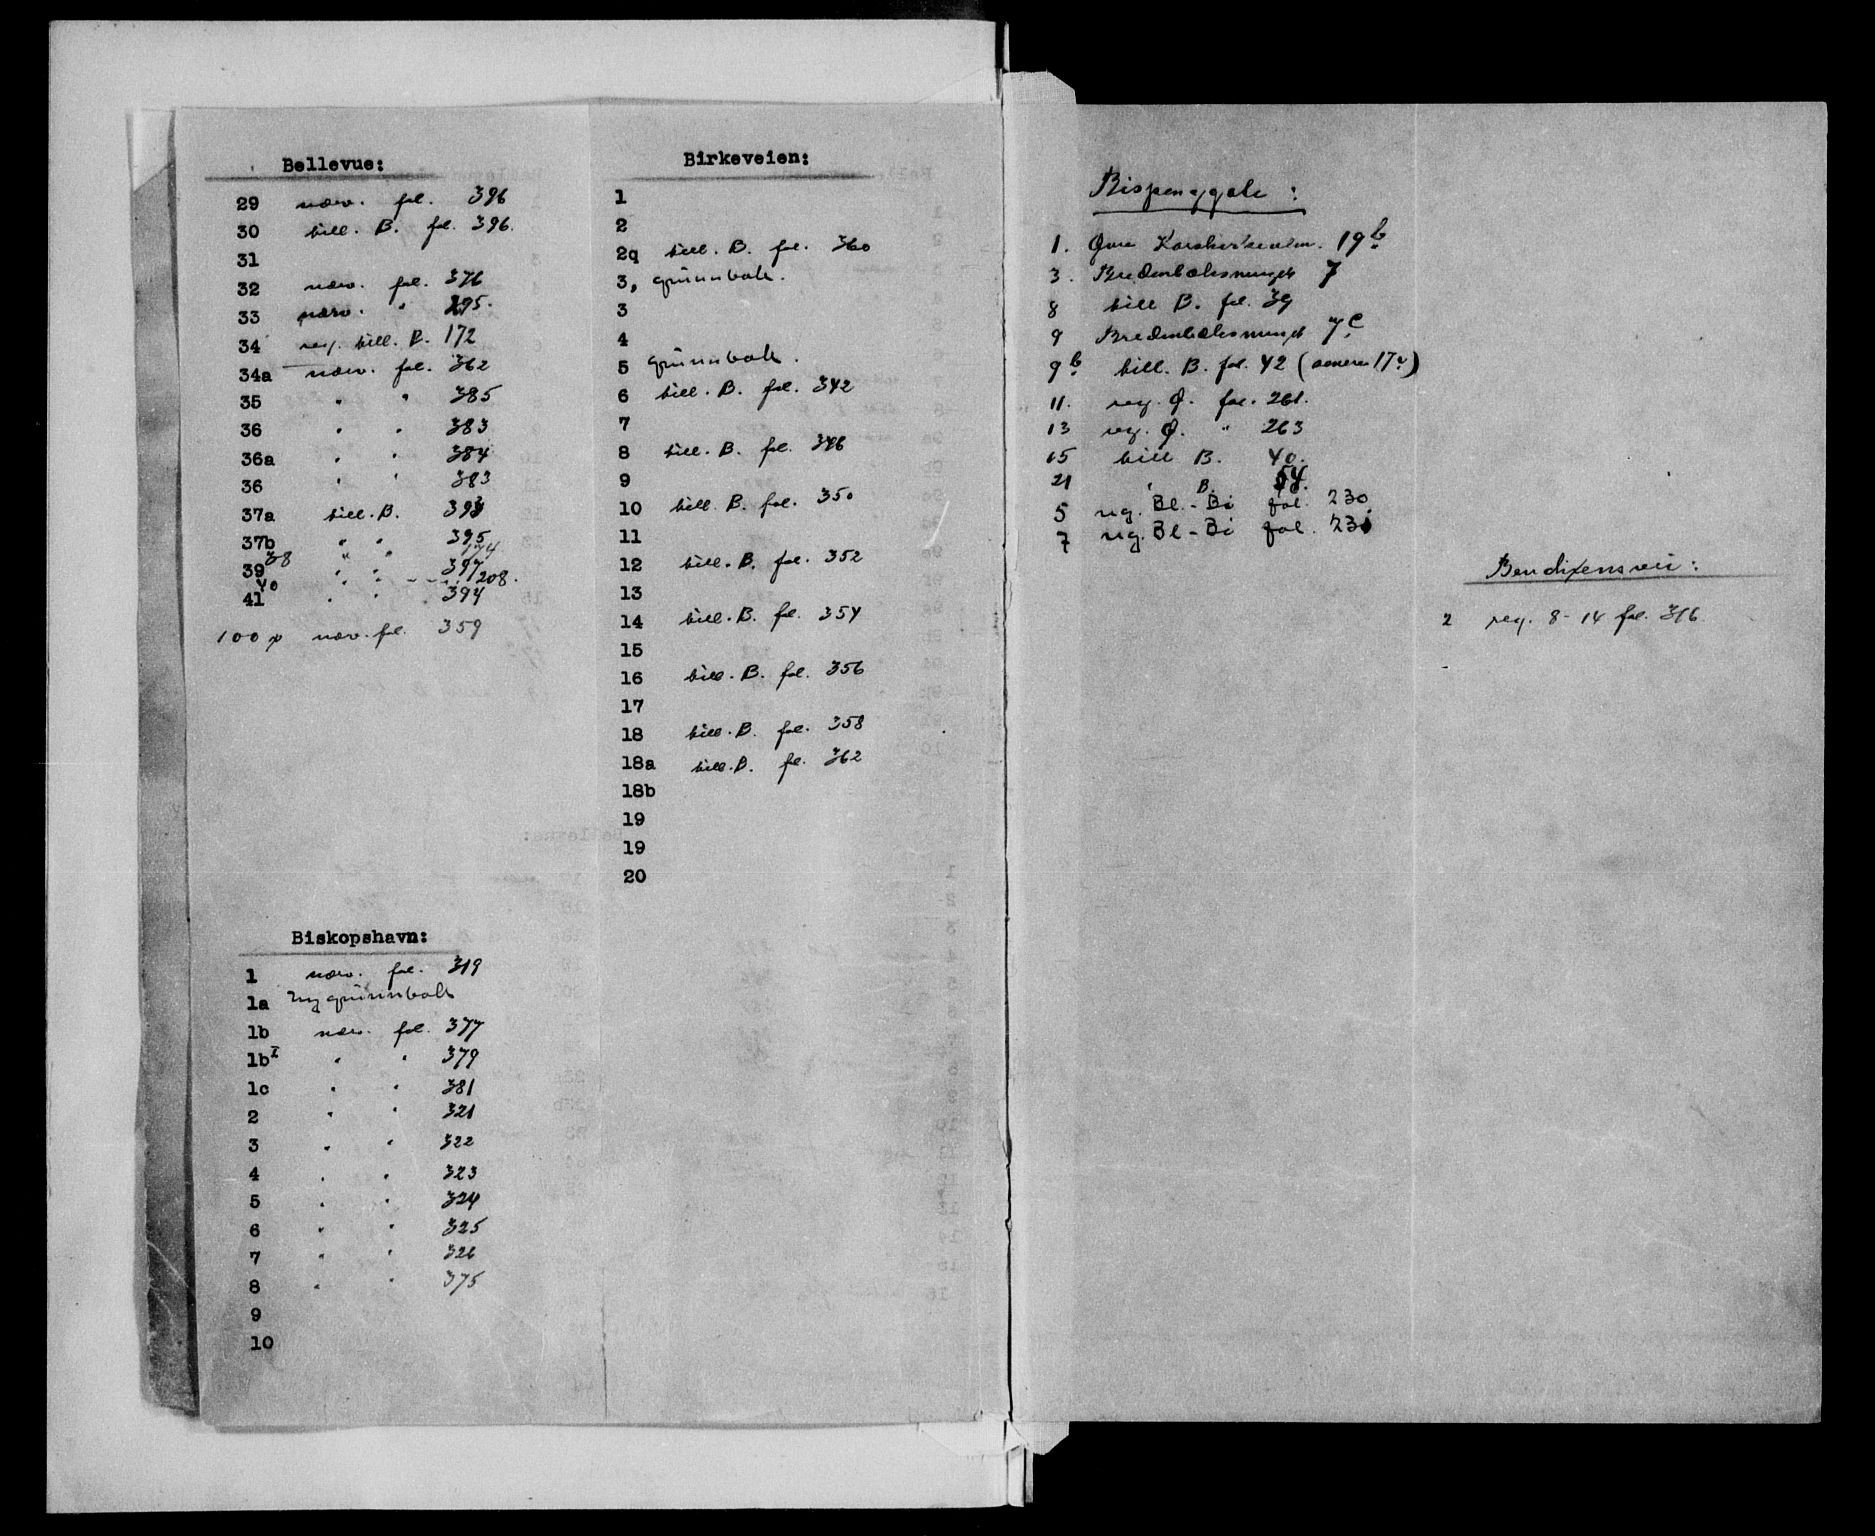 Bellevue:
29 nærv. fol. 396
30 bill. B. fol. 396.
31
32 nærv. fol. 376
33 nærv. " 295.
34 reg. bill. B. 172
34a nærv. fol. 362
35 " " 385
36 " " 383
36a " " 384
36 " " 383
37a bill. B. 393
37b " " 395
38 " " 174
39 " " 397
40 " " - - - 208.
41 " " 394
100 nærv. fol. 359
Biskopshavn:
1 nærv. fol. 319
1a Ny grunnbok
1b nærv. fol. 377
1bI " " 379
1c " " 381
2 " " 321
3 " " 322
4 " " 323
5 " " 324
6 " " 325
7 " " 326
8 " " 375
9
10
Birkeveien:
1
2
2q bill. B. fol. 360
3, grünnbok.
3
4
5 grünnbok.
6 bill. B. fol. 342
7
8 bill. B. fol. 346
9
10 bill. B. fol. 350
11
12 bill. B. fol. 352
13
14 bill. B. fol. 354
15
16 bill. B. fol. 356
17
18 bill. B. fol. 358
18a bill. B. fol. 362
18b
19
19
20
Bispenggate:
1. Øvre 19b
3. Bredenbeksmuget 7
8 bill B. fol. 39
9 Bredenbeksmuget 7c
9b bill. B. fol. 42 (senere 17a)
11. reg. Ø. fol. 261.
13 reg. Ø. " 263
15 bill B. 40.
21 " B. 54.
5 reg. Bl.-Bi fol. 230
7 reg. Bl-Bi fol. 231
Bendixensvei:
2 reg. 8-14 fol. 316